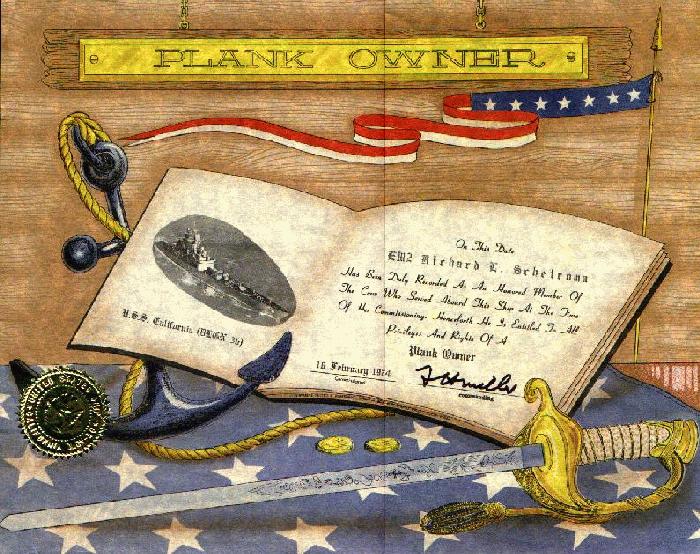 PLANK OWNER
On This Date
EM2 Richard L.
Has Been Duly Recorded As An Honored Member Of
The Crew Who Served Aboard This Ship At The Time
Of Its Commissioning. Henceforth He Is Entitled To All
Privileges And Rights Of A
Plank Owner
U.S.S. California (DLGN 36)
16 February 1974
Commissioned
Commanding
UNITED STATES NAVY